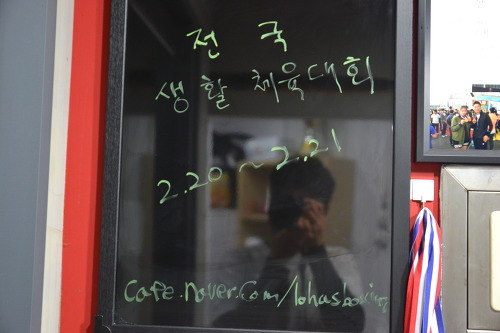 전국
생활체육대회
2.20 ~ 2.21
cafe.naver.com/lohasboxing